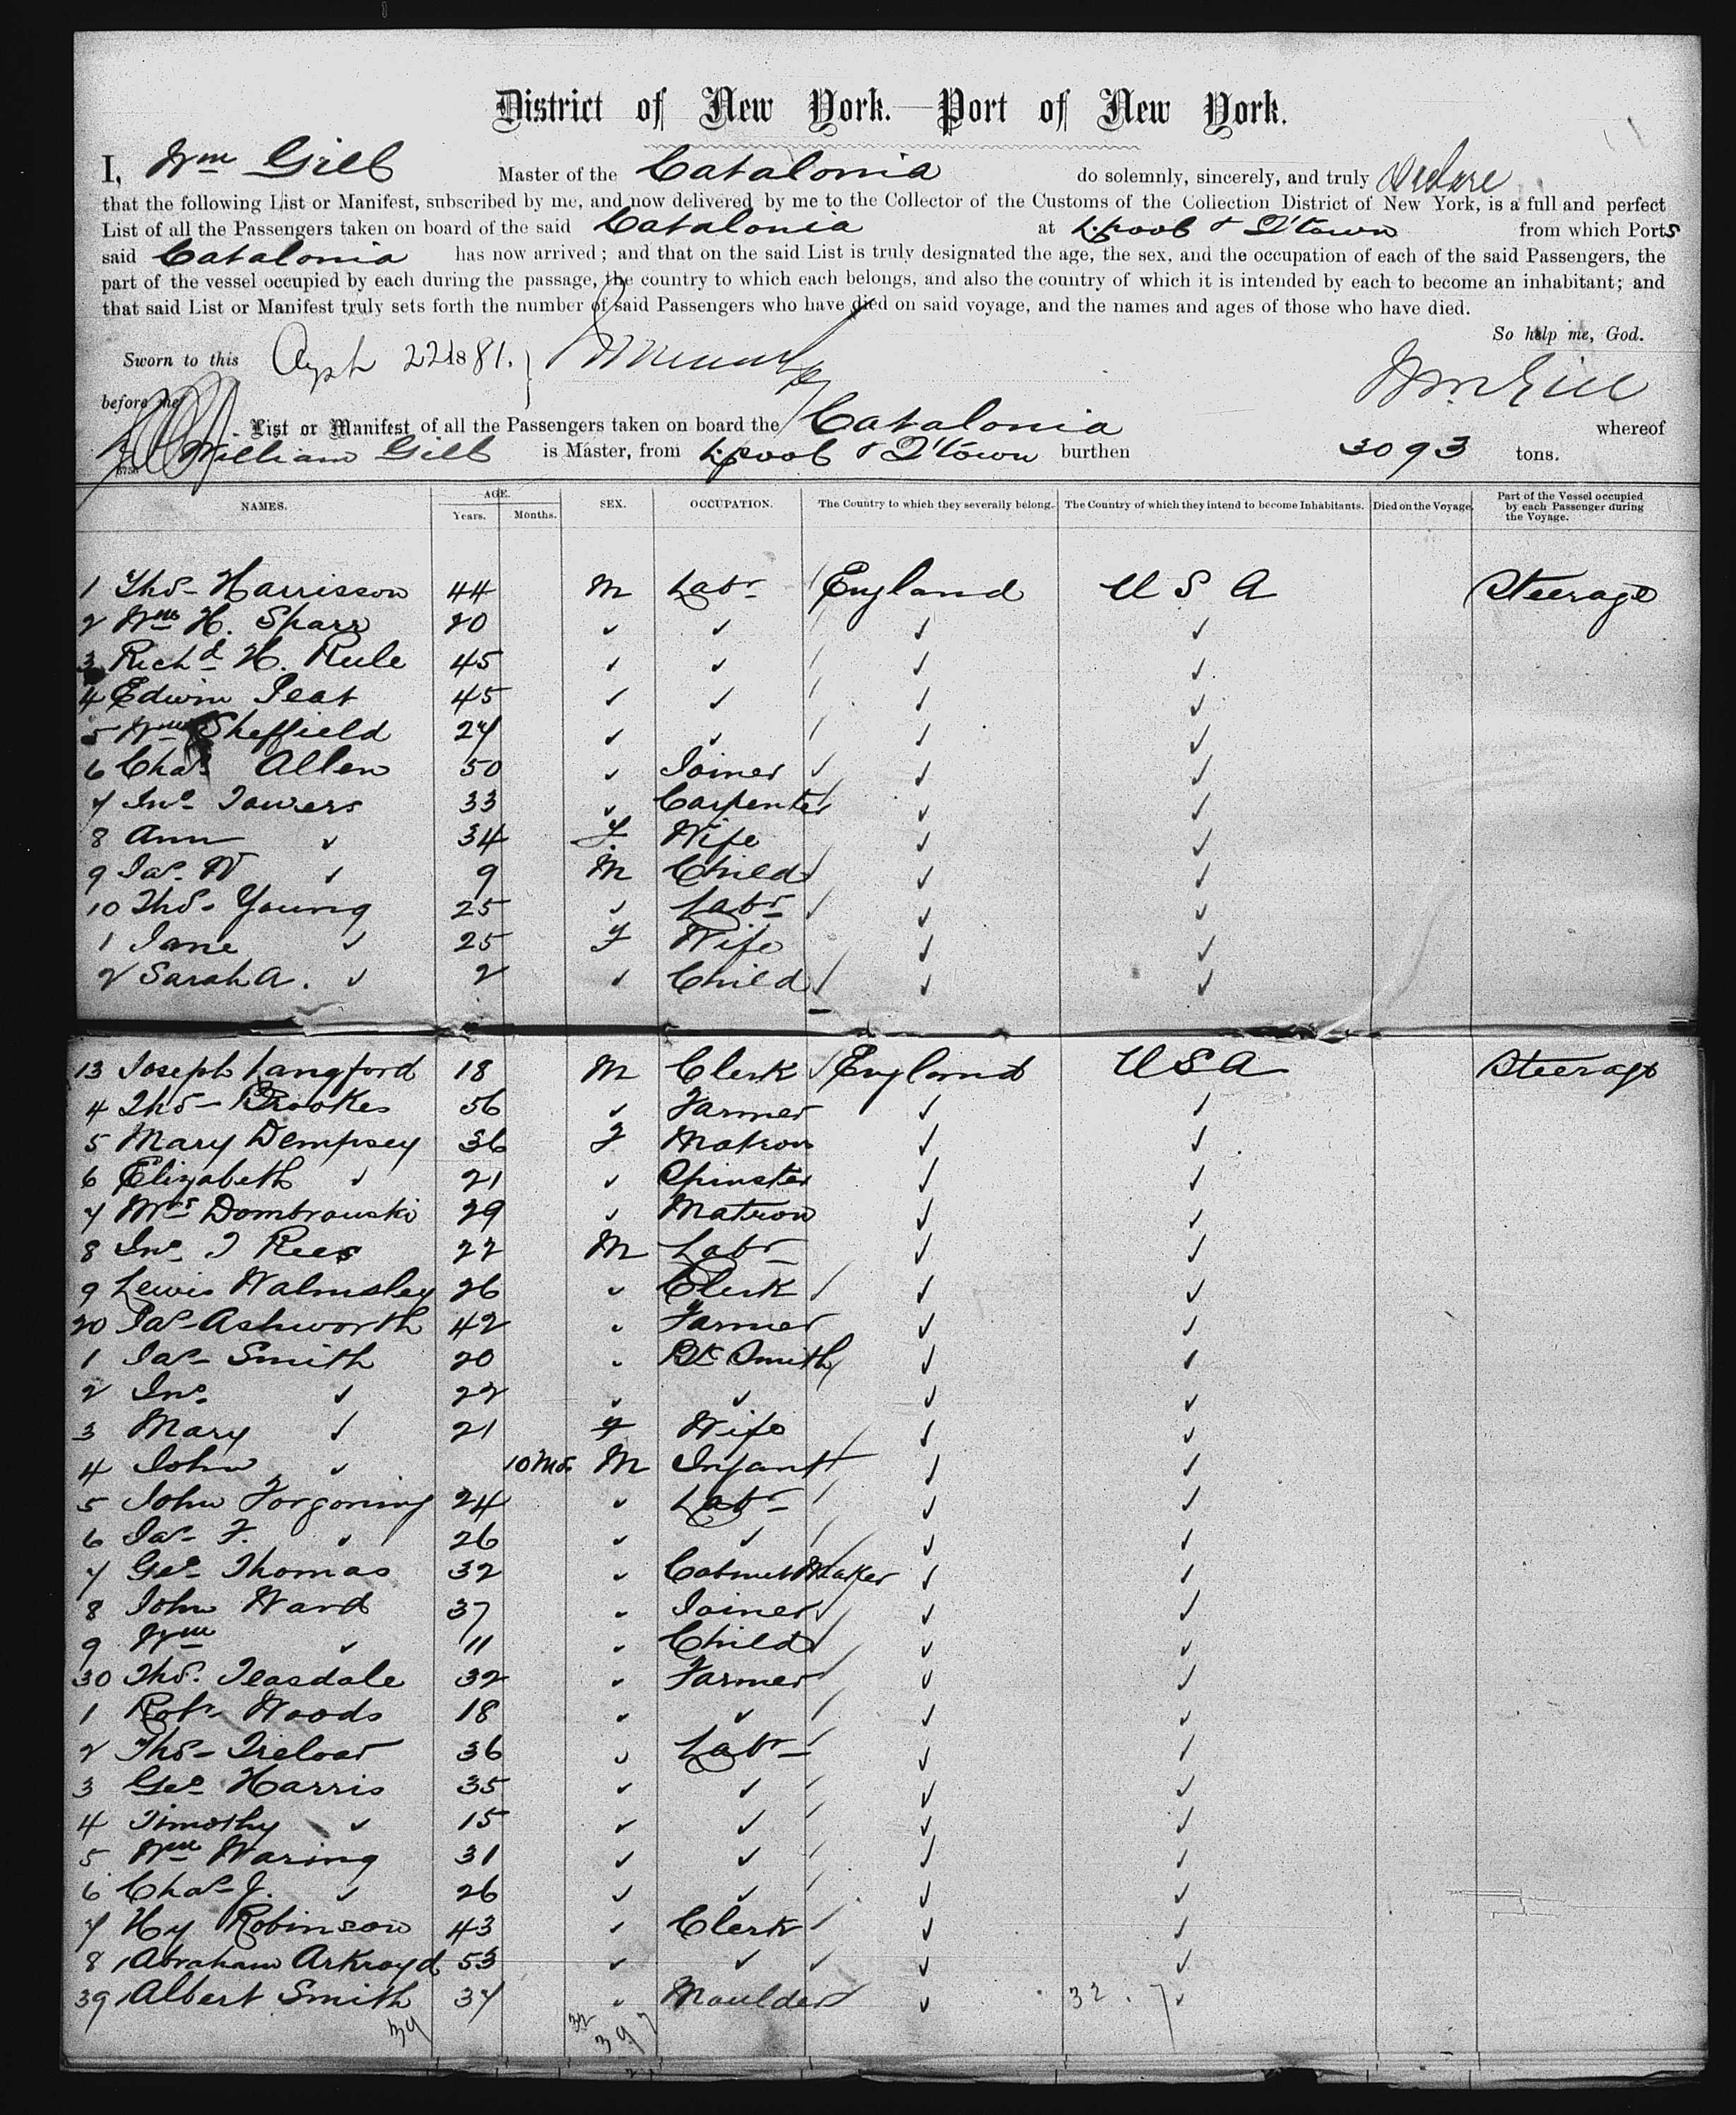 District of New York.—Port of New York.
I, Wm Gill Master of the Catalonia do solemnly, sincerely, and truly declare
that the following List or Manifest, subscribed by me, and now delivered by me to the Collector of the Customs of the Collection District of New York, is a full and perfect
List of all the Passengers taken on board of the said Catalonia at L'pool & Q'town from which Ports
said Catalonia has now arrived; and that on the said List is truly designated the age, the sex, and the occupation of each of the said Passengers, the
part of the vessel occupied by each during the passage, the country to which each belongs, and also the country of which it is intended by each to become an inhabitant; and
that said List or Manifest truly sets forth the number of said Passengers who have died on said voyage, and the names and ages of those who have died.
So help me, God.
Sworn to this 22 1881.
Wm Gill
before me
List or Manifest of all the Passengers taken on board the Catalonia whereof
William Gill is Master, from L'pool & Q'town burthen 3093 tons.
NAMES. AGE. SEX. OCCUPATION. The Country to which they severally belong. The Country of which they intend to become Inhabitants. Died on the Voyage. Part of the Vessel occupied by each Passenger during the Voyage.
Years. Months.
1 Thos- Harrisson 44 M Labr England U S A Steerage
2 Wm H. Sharr 20 ✓ ✓ ✓ ✓
3 Richd H. Rule 45 ✓ ✓ ✓ ✓
4 Edwin Peat 45 ✓ ✓ ✓ ✓
5 Wm Sheffield 27 ✓ ✓ ✓ ✓
6 Chas Allen 50 ✓ Joiner ✓ ✓
7 Jno- Towers 33 ✓ Carpenter ✓ ✓
8 Ann ✓ 34 F. Wife ✓ ✓
9 Jas. W ✓ 9 M Child ✓ ✓
10 Thos- Young 25 ✓ Labr ✓ ✓
1 Jane ✓ 25 F Wife ✓ ✓
2 Sarah A. ✓ 2 ✓ Child ✓ ✓
13 Joseph Langford 18 M Clerk England U S A Steerage
4 Thos- Brookes 56 ✓ Farmer ✓ ✓
5 Mary Dempsey 36 F Matron ✓ ✓
6 Elizabeth ✓ 21 ✓ Spinster ✓ ✓
7 Mrs Dombrouski 29 ✓ Matron ✓ ✓
8 Jno. J Rees 22 M Labr ✓ ✓
9 Lewis Walmsley 26 ✓ Clerk ✓ ✓
20 Jas- Ashworth 42 ✓ Farmer ✓ ✓
1 Jas- Smith 20 ✓ Bk Smith ✓ ✓
2 Jno. ✓ 22 ✓ ✓ ✓ ✓
3 Mary ✓ 21 F Wife ✓ ✓
4 John ✓ 10 Mos. M Infant ✓ ✓
5 John Forgoning 24 ✓ Labr ✓ ✓
6 Jas- F. ✓ 26 ✓ ✓ ✓ ✓
7 Geo- Thomas 32 ✓ Cabinet Maker ✓ ✓
8 John Ward 37 ✓ Joiner ✓ ✓
9 Wm ✓ 11 ✓ Child ✓ ✓
30 Thos. Teasdale 32 ✓ Farmer ✓ ✓
1 Robt- Woods 18 ✓ ✓ ✓ ✓
2 Thos- Treloar 36 ✓ Labr ✓ ✓
3 Geo- Harris 35 ✓ ✓ ✓ ✓
4 Timothy ✓ 15 ✓ ✓ ✓ ✓
5 Wm Waring 31 ✓ ✓ ✓ ✓
6 Chas- J. ✓ 26 ✓ ✓ ✓ ✓
7 Hy Robinson 43 ✓ Clerk ✓ ✓
8 Abraham Arkroyd 53 ✓ ✓ ✓ ✓
39 Albert Smith 37 ✓ Moulder ✓ 32. 7 ✓
39 32 39 7